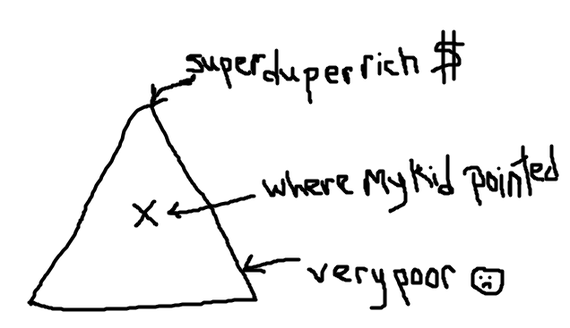 superduperrich $
X
where My kid pointed
very poor ☹